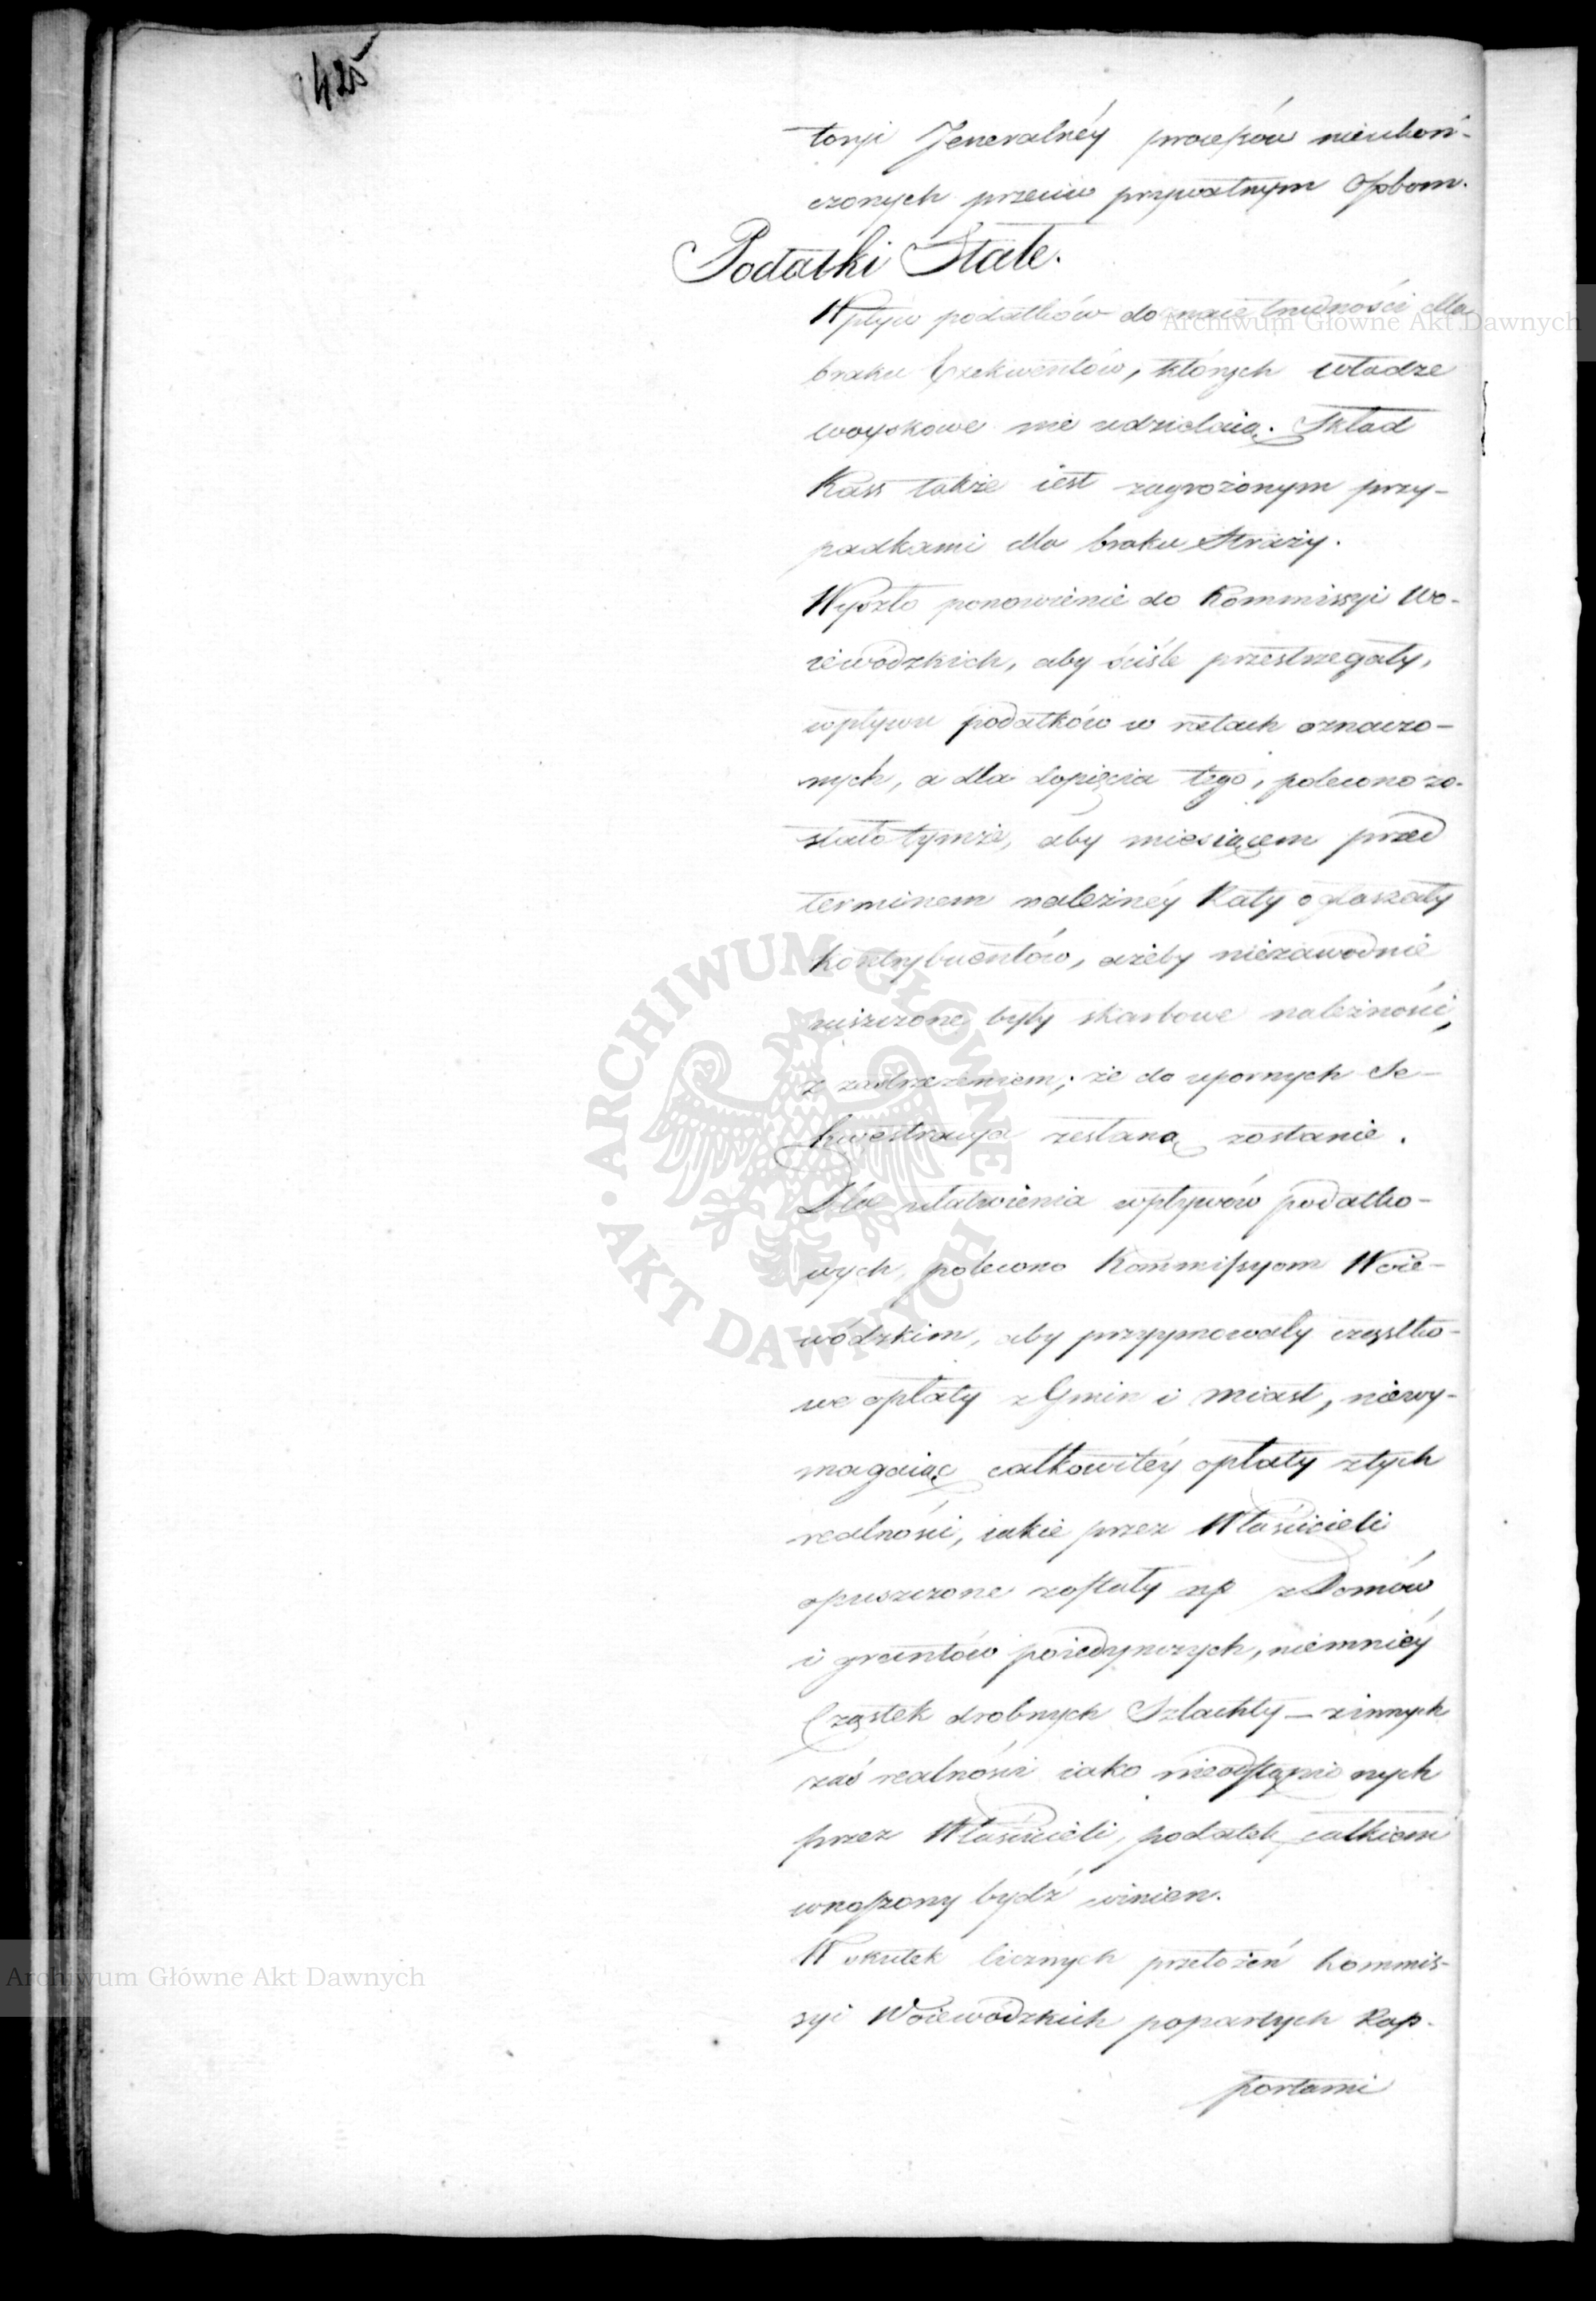 425
toryi Jeneralnéy processów nieukoń-
czonych przeciw prywatnym Osobom.
Podatki Stałe.
Wpływ podatków doznaie trudności dla
braku Exekwentów, których władze
woyskowe nie udzielaią. Skład
Kass także iest zagrożonym przy-
padkami dla braku straży.
Wyszło ponowienie do Kommissyi Wo-
iewódzkich, aby ściśle przestrzegały,
wpływu podatków w ratach oznaczo-
nych, a dla dopięcia tego, polecono zo-
stało tymże, aby miesiącem przed
terminem należnéy Raty ogłaszały
Kontrybuentów, ażeby niezawodnie
uiszczone były skarbowe należności,
z zastrzeżeniem; że do upornych Se-
kwestracya zesłaną zostanie.
Dla ułatwienia wpływów podatko-
wych, polecono Kommissyom Woie-
wódzkim, aby przyymowały cząstko-
we opłaty z Gmin i miast, niewy-
magaiąc całkowitéy opłaty z tych
realności, iakie przez Właścicieli
opuszczone zostały np z Domów
i gruntów poiedynczych, niemniéy
Cząstek drobnych Szlachty — z innych
zaś realności iako nieodstąpionych
przez Właścicieli, podatek całkiem
wnoszony bydź winien.
W skutek licznych przełożeń Kommis-
syi Woiewódzkich popartych Rap-
portami
Archiwum Główne Akt Dawnych
ARCHIWUM GŁÓWNE
AKT DAWNYCH
Archiwum Główne Akt Dawnych